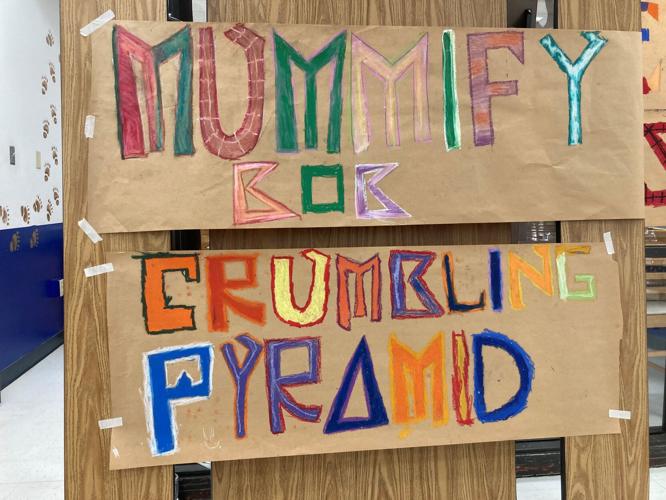 MUMMIFY
BOB
CRUMBLING
PYRAMID